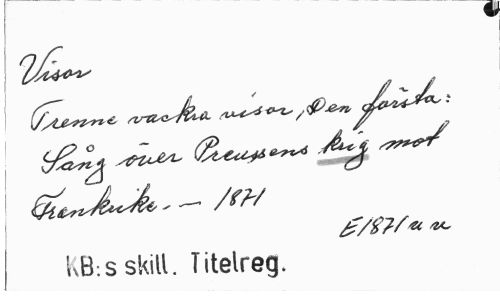 Visor
Trenne vackra visor, Den första:
Sång över Preussens krig mot
Frankrike. — 1871
E1871 u u
KB:s skill. Titelreg.